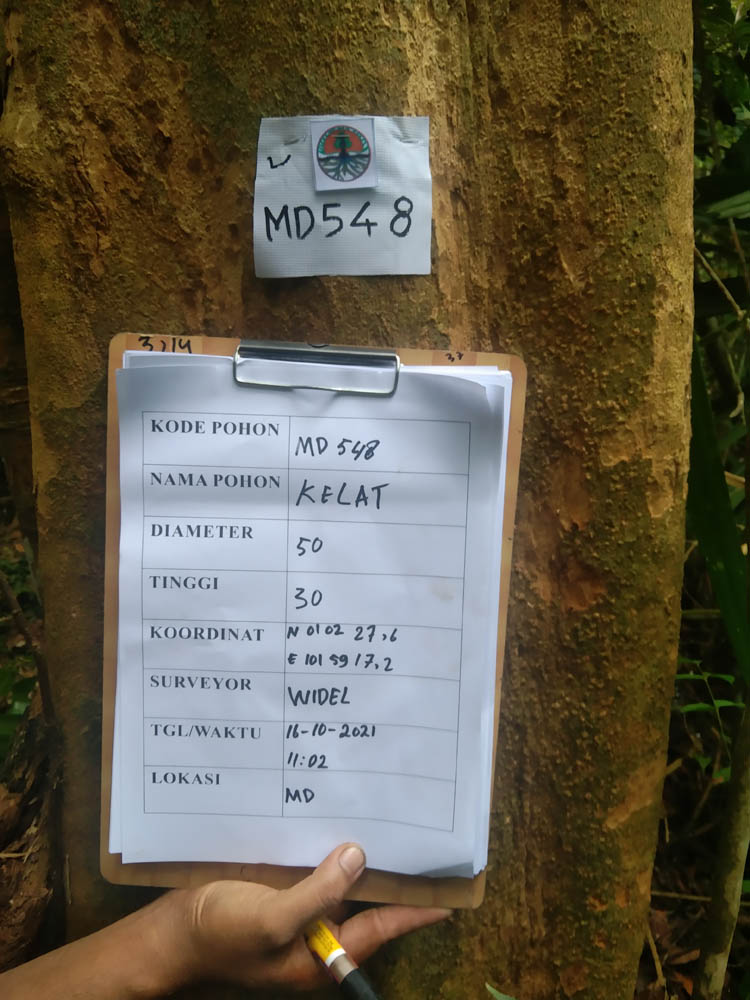 MD548
3,14
KODE POHON MD 548
NAMA POHON KELAT
DIAMETER 50
TINGGI 30
KOORDINAT N 01 02 27,6
E 101 59 17,2
SURVEYOR WIDEL
TGL/WAKTU 16-10-2021
11:02
LOKASI MD